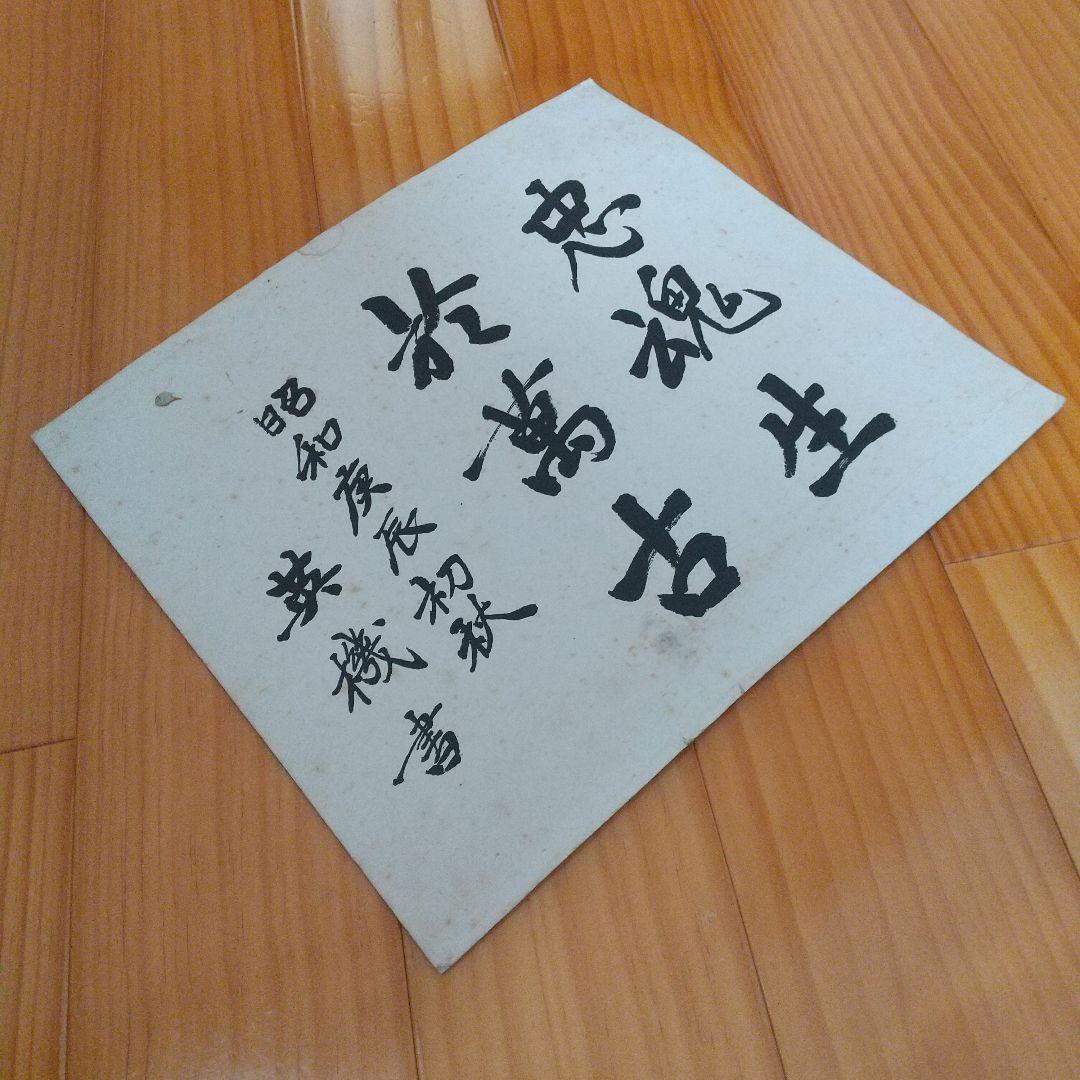 忠魂生
於萬古
昭和庚辰初秋
英機書